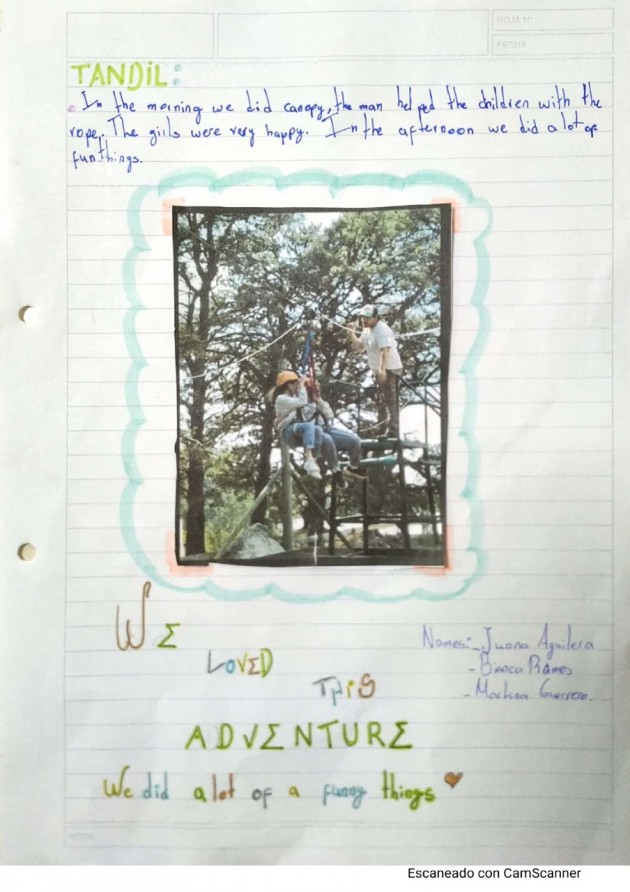 HOJA N°
FECHA
TANDIL:
In the morning we did canopy, the man helped the children with the
rope. The girls were very happy. In the afternoon we did a lot of
fun things.
WE
LOVED
THIS
ADVENTURE
We did a lot of a funny things
Names:- Juana Aguilera
- Bianca Ramos
- Martina Guerrero.
NOTA
Escaneado con CamScanner